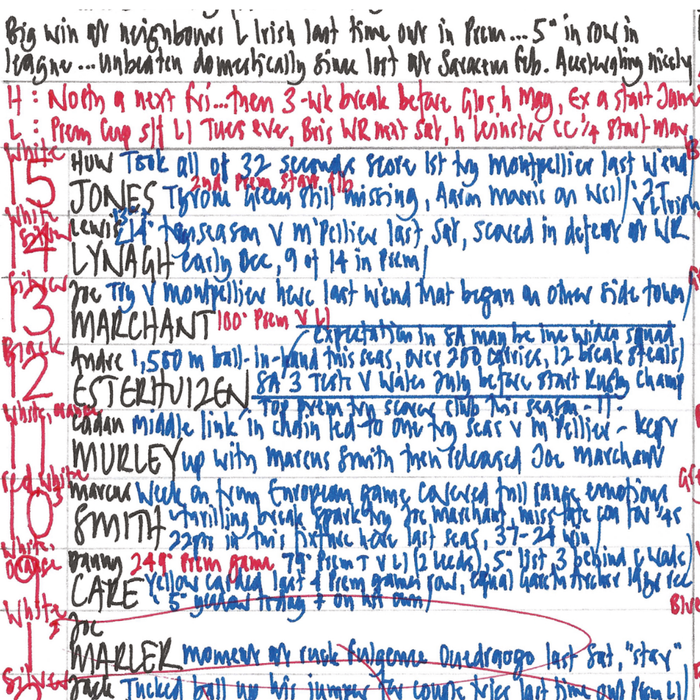 Big win at neighbours L Irish last time out in Prem... 5th in row in
league... unbeaten domestically since lost at Saracens Feb. Accelerating nicely
H: North a next Fri... then 3-wk break before Glos h May, Ex a start June
L: Prem Cup s/f LI Tues eve, Bris WR mat Sat, h Leinster CC 1/4 start May
White
15 HUW Took all of 32 seconds score 1st try Montpellier last w'end
2nd Prem start
JONES Tyrone Green still missing, Aaron Morris on Weds/
White
14 Lewis 14th try season v M'Pellier last Sat, scored in defeat at WR
LYNAGH early Dec, 9 of 14 in Prem/
Silver
13 Joe Try v Montpellier here last w'end that began on other side town/
MARCHANT 100th Prem v LI
Expectation in SA may be inc wider squad
Black
12 Andre 1,580 m ball-in-hand this seas, over 200 carries, 12 break steals/
ESTERHUIZEN SA 3 Tests v Wales July before start Rugby Champ
Top Prem try scorer club this season - 11.
White, orange
11 Cadan middle link in chain led to one try seas v M'Pellier - kept
MURLEY up with Marcus Smith then released Joe Marchant
red, white
10 Marcus Week on from European game, covered full range emotions
thrilling break spark try Joe Marchant, miss late con for
SMITH 22pts in this fixture here last seas, 37-24 win/
White, orange
9 Danny 249th Prem game 79th Prem T v LI (2 leeds), 5th list, 3 behind C Wade/
CARE Yellow carded last 4 Prem games row, equal Gareth Archer lge rec
5th yellow today + on his own/
White
1 Joe
MARLER moment at ruck Fulgence Ouedraogo last Sat, "stay"
Silver
Jack Tucked ball up his jumper for couple tries last time out Prem LI